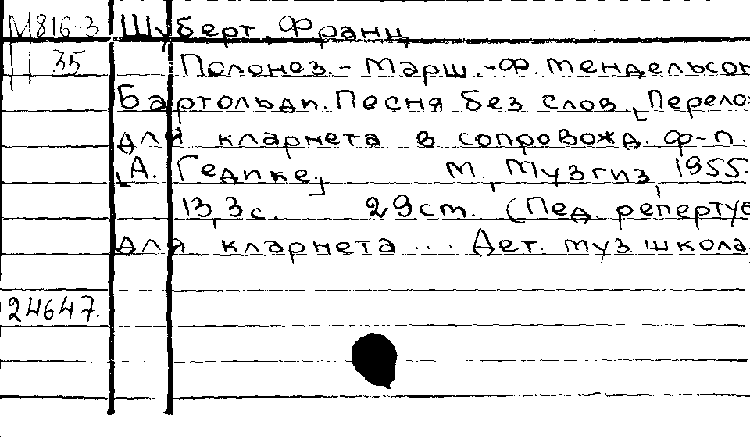 М816-3 Шуберт, Франц
35 Полонез.- Марш.-Ф. Мендельсон
Бартольди. Песня без слов. [Перело
для кларнета в сопровожд. ф-п.
[А. Гедике] М., Музгиз, 1955.
13,3с. 29cm. (Пед. репертуа
для кларнета... Дет. муз школа
24647.